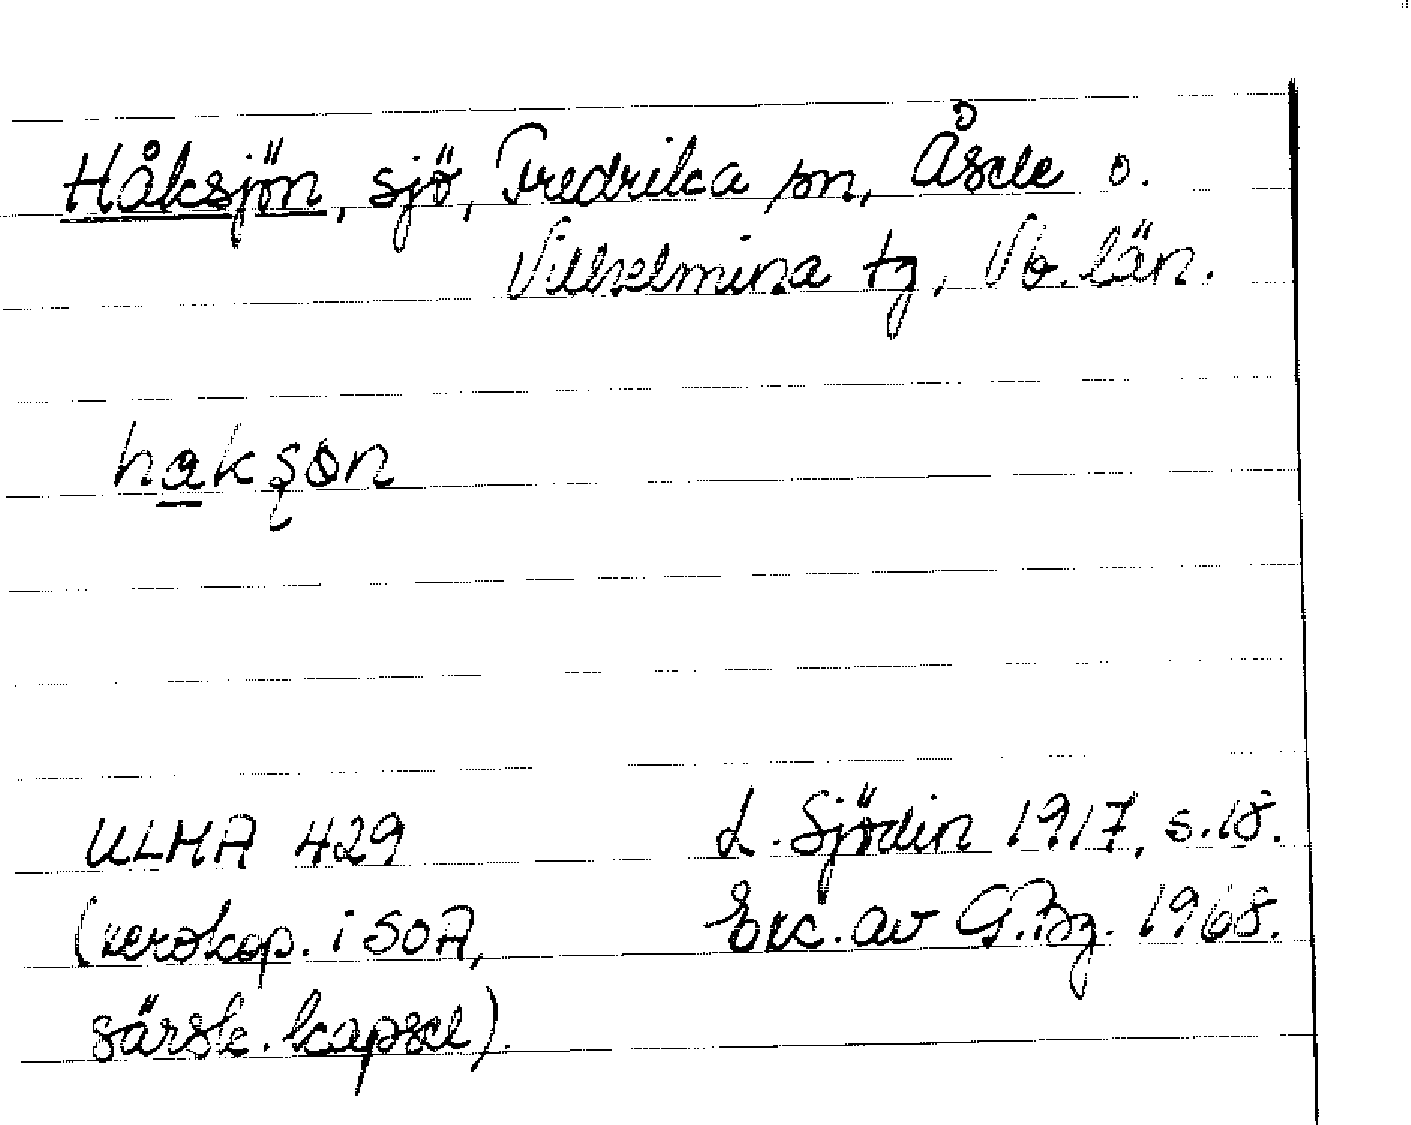 Håksjön, sjö, Fredrika sn, Åsele o.
Vilhelmina tg, Vb. län.
hakşøn
ULMA 429
L. Sjödin 1917, s. 18.
(xerokop. i SOA,
Exc. av G.Bg. 1968.
särsk. kapsel).